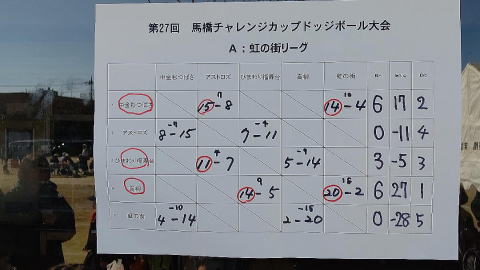 第27回 馬橋チャレンジカップドッジボール大会
A:虹の街リーグ
中金杉つばさ アストロズ ひまわり稲寿台 高柳 虹の街
中金杉つばさ 7 15-8 10 14-4 6 17 2
アストロズ -7 8-15 -4 7-11 0 -11 4
4 11-7 -9 5-14 3 -5 3
高柳 9 14-5 18 20-2 6 27 1
虹の街 -10 4-14 -18 2-20 0 -28 5